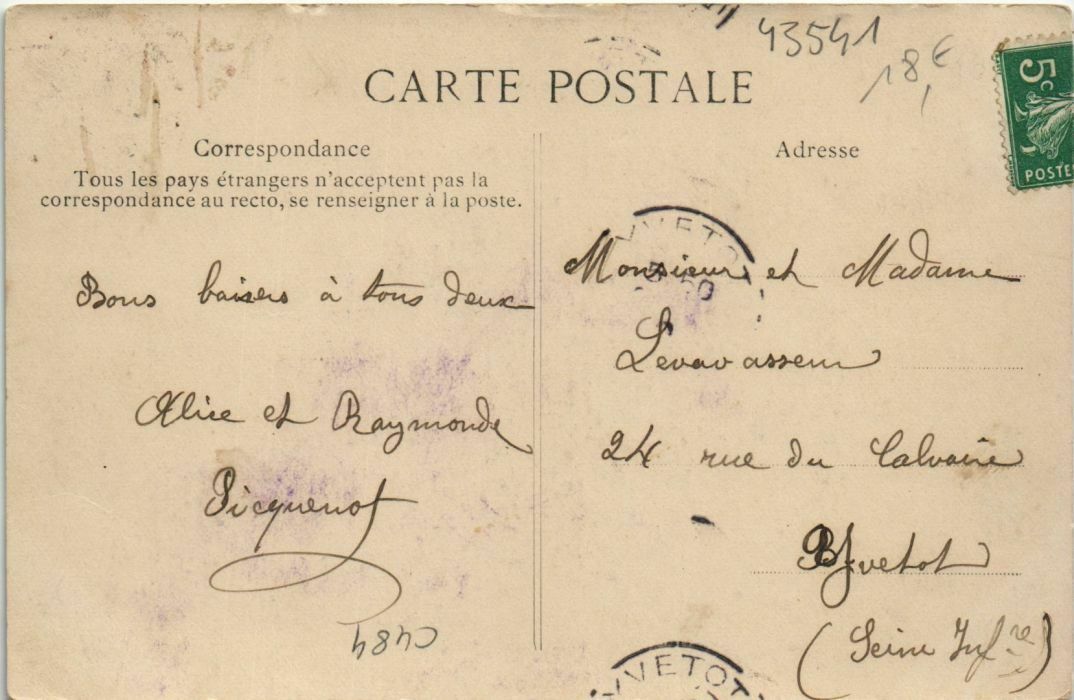 43541
18,€
CARTE POSTALE
5c
POSTE
Correspondance
Tous les pays étrangers n'acceptent pas la
correspondance au recto, se renseigner à la poste.
Bons baisers à tous deux
Alice et Raymonde
Picquenot
C484
Adresse
YVETO
5
Monsieur et Madame
Levavasseur
24 rue du Calvaire
Yvetot
(Seine Infre)
YVETOT